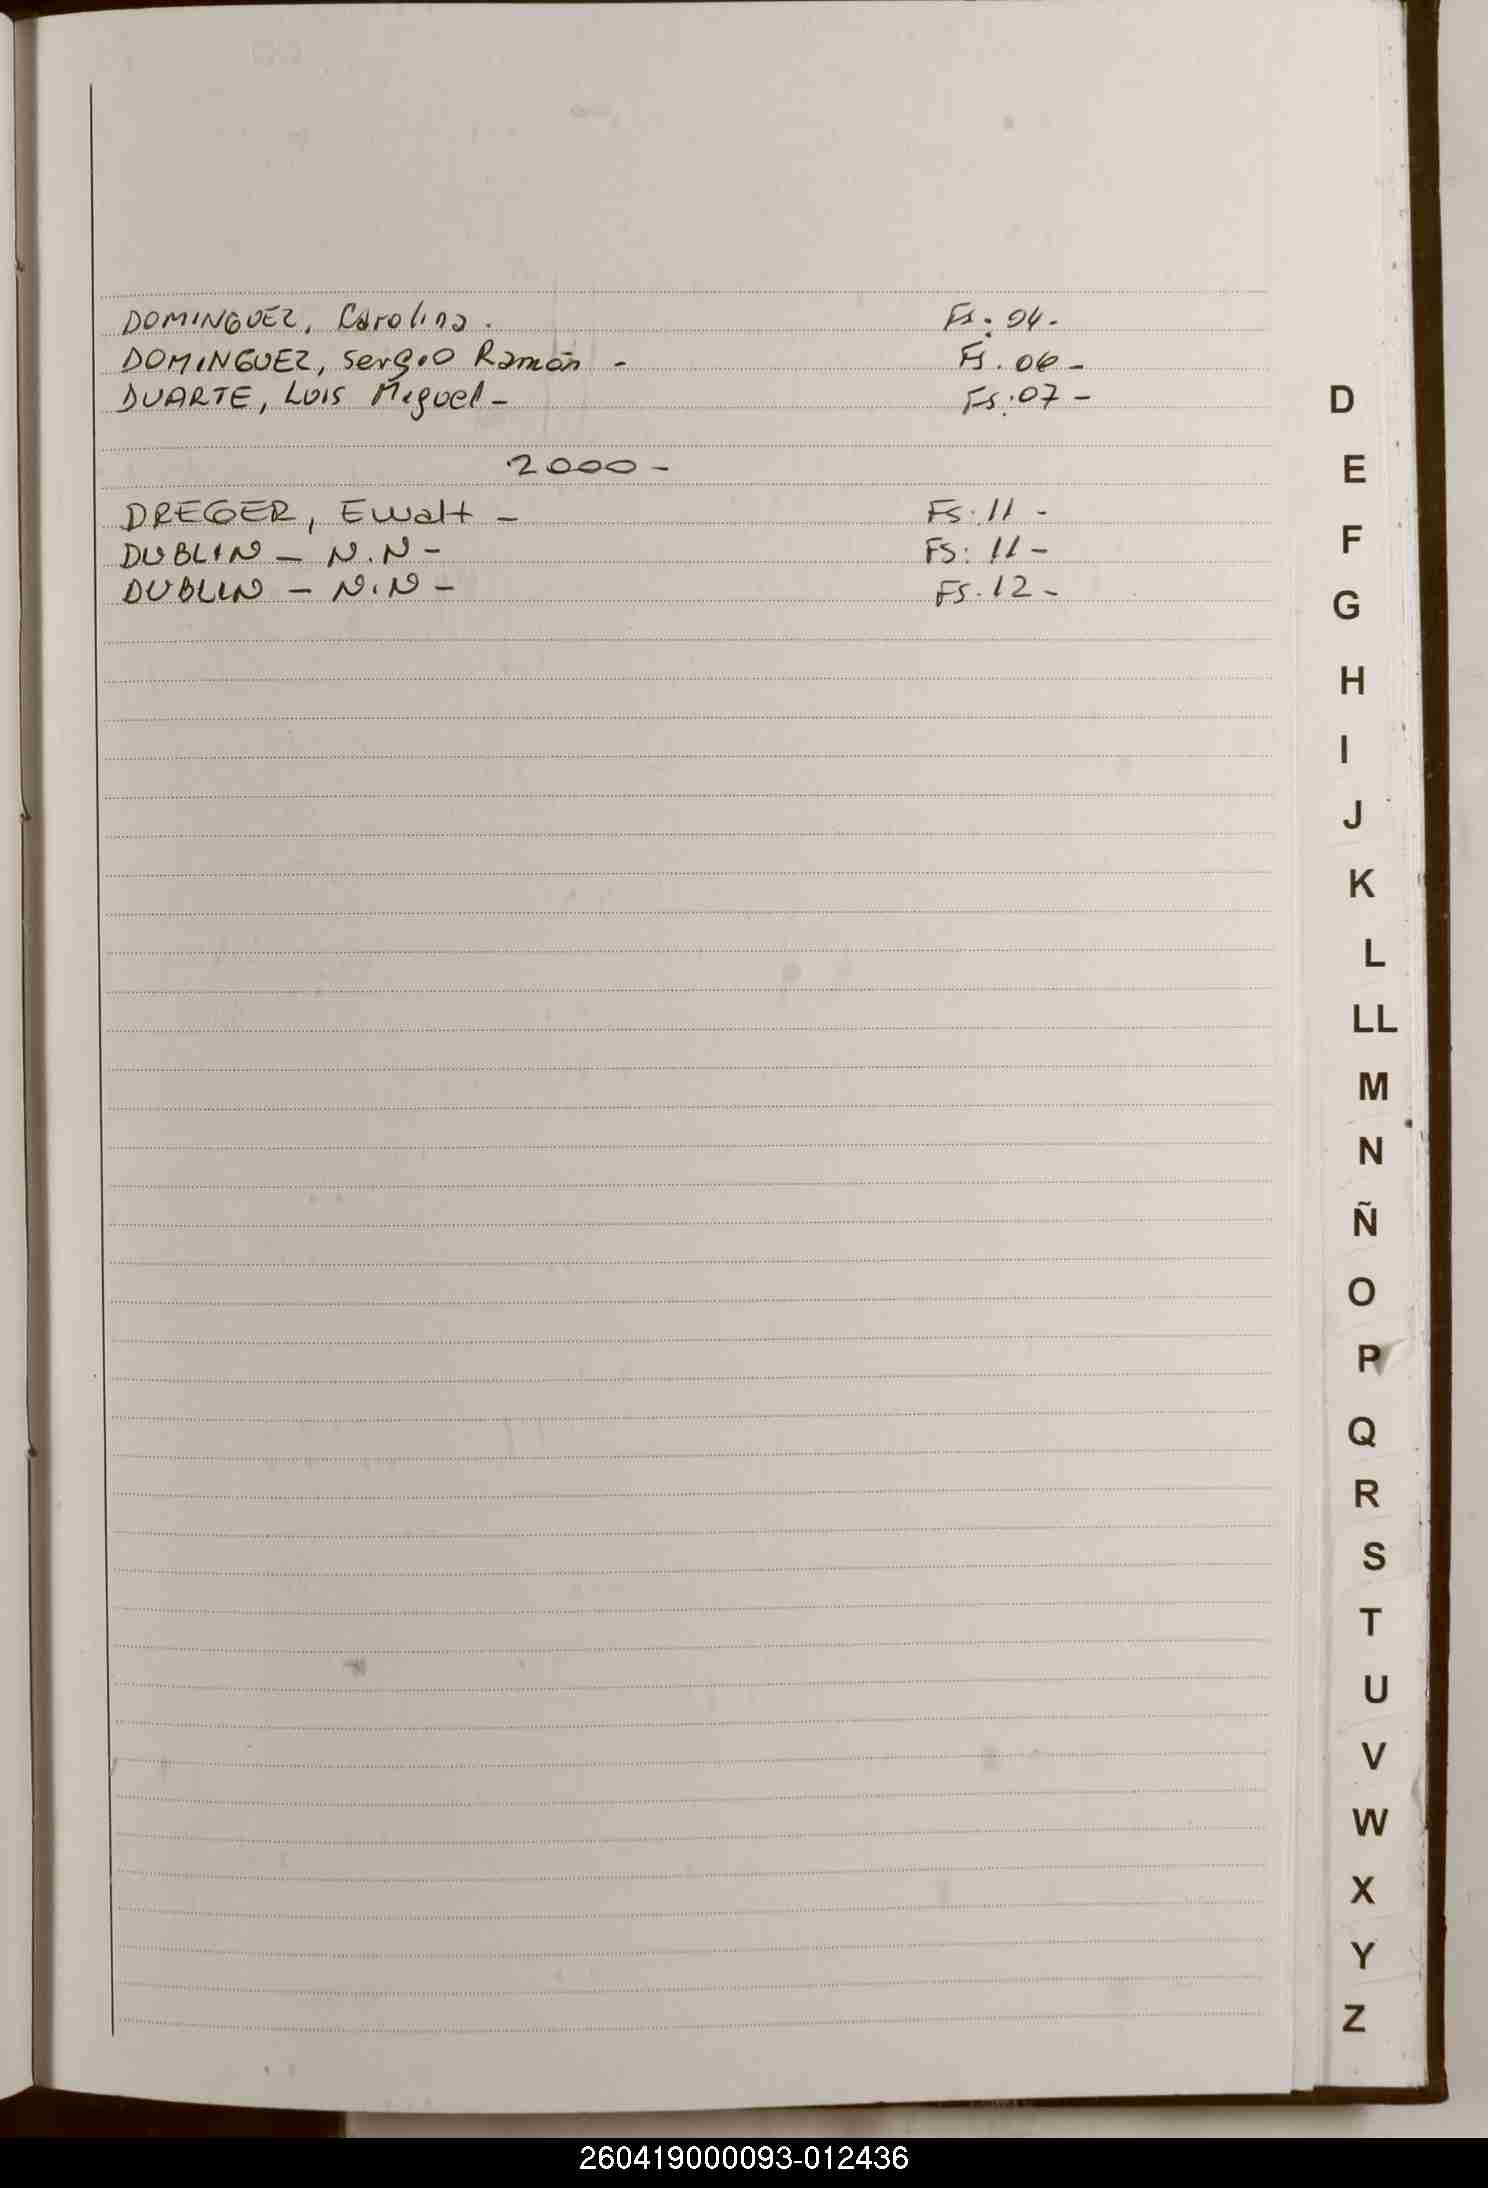 DOMINGUEZ, Carolina. Fs. 04-
DOMINGUEZ, Sergio Ramón - Fs. 06-
DUARTE, Luis Miguel - Fs. 07-
2000-
DREGER, Ewalt - Fs. 11-
DUBLIN - N.N- Fs: 11-
DUBLIN - N.N- Fs. 12-
D
E
F
G
H
I
J
K
L
LL
M
N
Ñ
O
P
Q
R
S
T
U
V
W
X
Y
Z
260419000093-012436